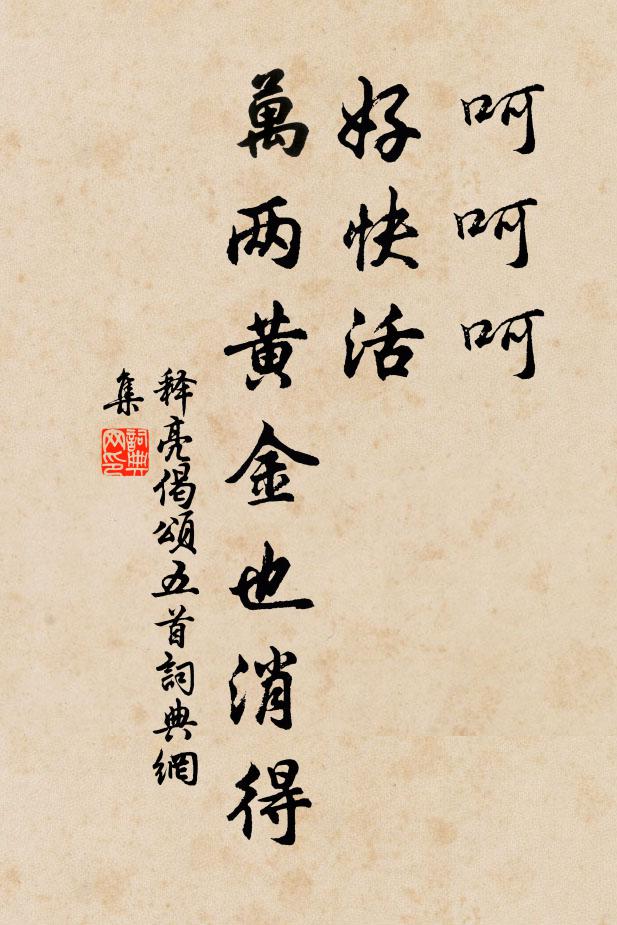 呵呵呵
好快活
萬两黄金也消得
释亮偈頌五首詞典網
集
詞典
网印